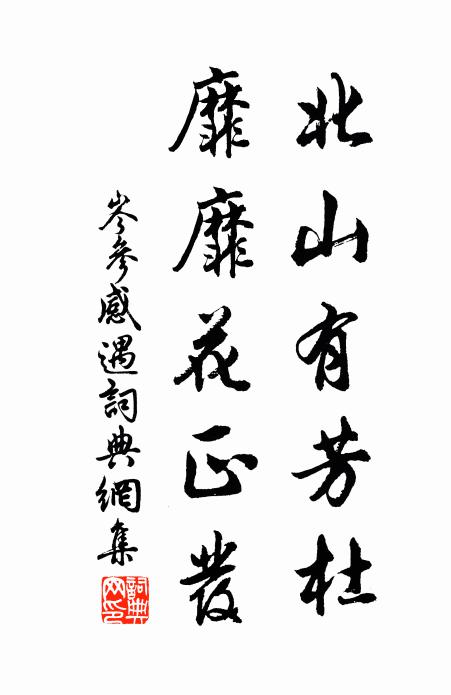 北山有芳杜
靡靡花正發
岑參感遇詞典網集
詞典網印